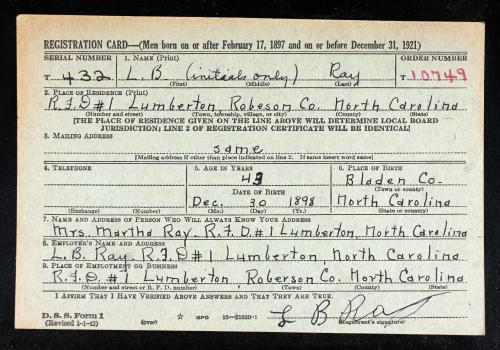 REGISTRATION CARD—(Men born on or after February 17, 1897 and on or before December 31, 1921)
SERIAL NUMBER 1. NAME (Print) ORDER NUMBER
T 432 L. B. (initials only) Ray T 10749
(First) (Middle) (Last)
2. PLACE OF RESIDENCE (Print)
R.F.D #1 Lumberton, Robeson Co. North Carolina
(Number and street) (Town, township, village, or city) (County) (State)
[THE PLACE OF RESIDENCE GIVEN ON THE LINE ABOVE WILL DETERMINE LOCAL BOARD
JURISDICTION; LINE 2 OF REGISTRATION CERTIFICATE WILL BE IDENTICAL]
3. MAILING ADDRESS
same
[Mailing address if other than place indicated on line 2. If same insert word same]
4. TELEPHONE 5. AGE IN YEARS 6. PLACE OF BIRTH
43 Bladen Co.
DATE OF BIRTH (Town or county)
Dec. 30 1898 North Carolina
(Exchange) (Number) (Mo.) (Day) (Yr.) (State or country)
7. NAME AND ADDRESS OF PERSON WHO WILL ALWAYS KNOW YOUR ADDRESS
Mrs. Martha Ray, R.F.D.#1 Lumberton, North Carolina
8. EMPLOYER'S NAME AND ADDRESS
L.B. Ray, R.F.D #1 Lumberton, North Carolina
9. PLACE OF EMPLOYMENT OR BUSINESS
R.F.D. #1 Lumberton, Roberson Co. North Carolina
(Number and street or R. F. D. number) (Town) (County) (State)
I AFFIRM THAT I HAVE VERIFIED ABOVE ANSWERS AND THAT THEY ARE TRUE.
D. S. S. Form 1
(Revised 1-1-42) (over) ☆ GPO 16—21630-1 L B Ray
(Registrant's signature)